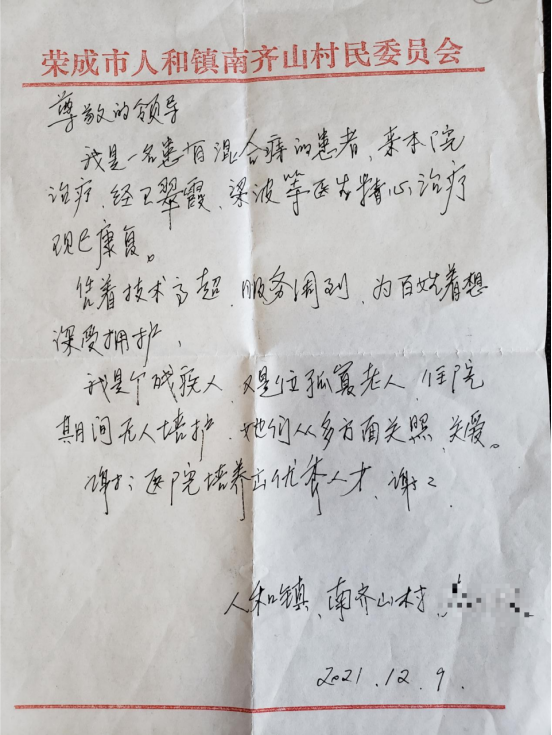 荣成市人和镇南齐山村民委员会
尊敬的领导
我是一名患有混合痔的患者，来本院
治疗，经卫翠霞，梁波等医生精心治疗
现已康复。
凭着技术高超，服务周到，为百姓着想
深受拥护，
我是个残疾人，又是位孤寡老人，住院
期间无人培护，她们从多方面关照，关爱。
谢谢医院培养出优秀人才，谢谢
人和镇，南齐山村，
2021.12.9.